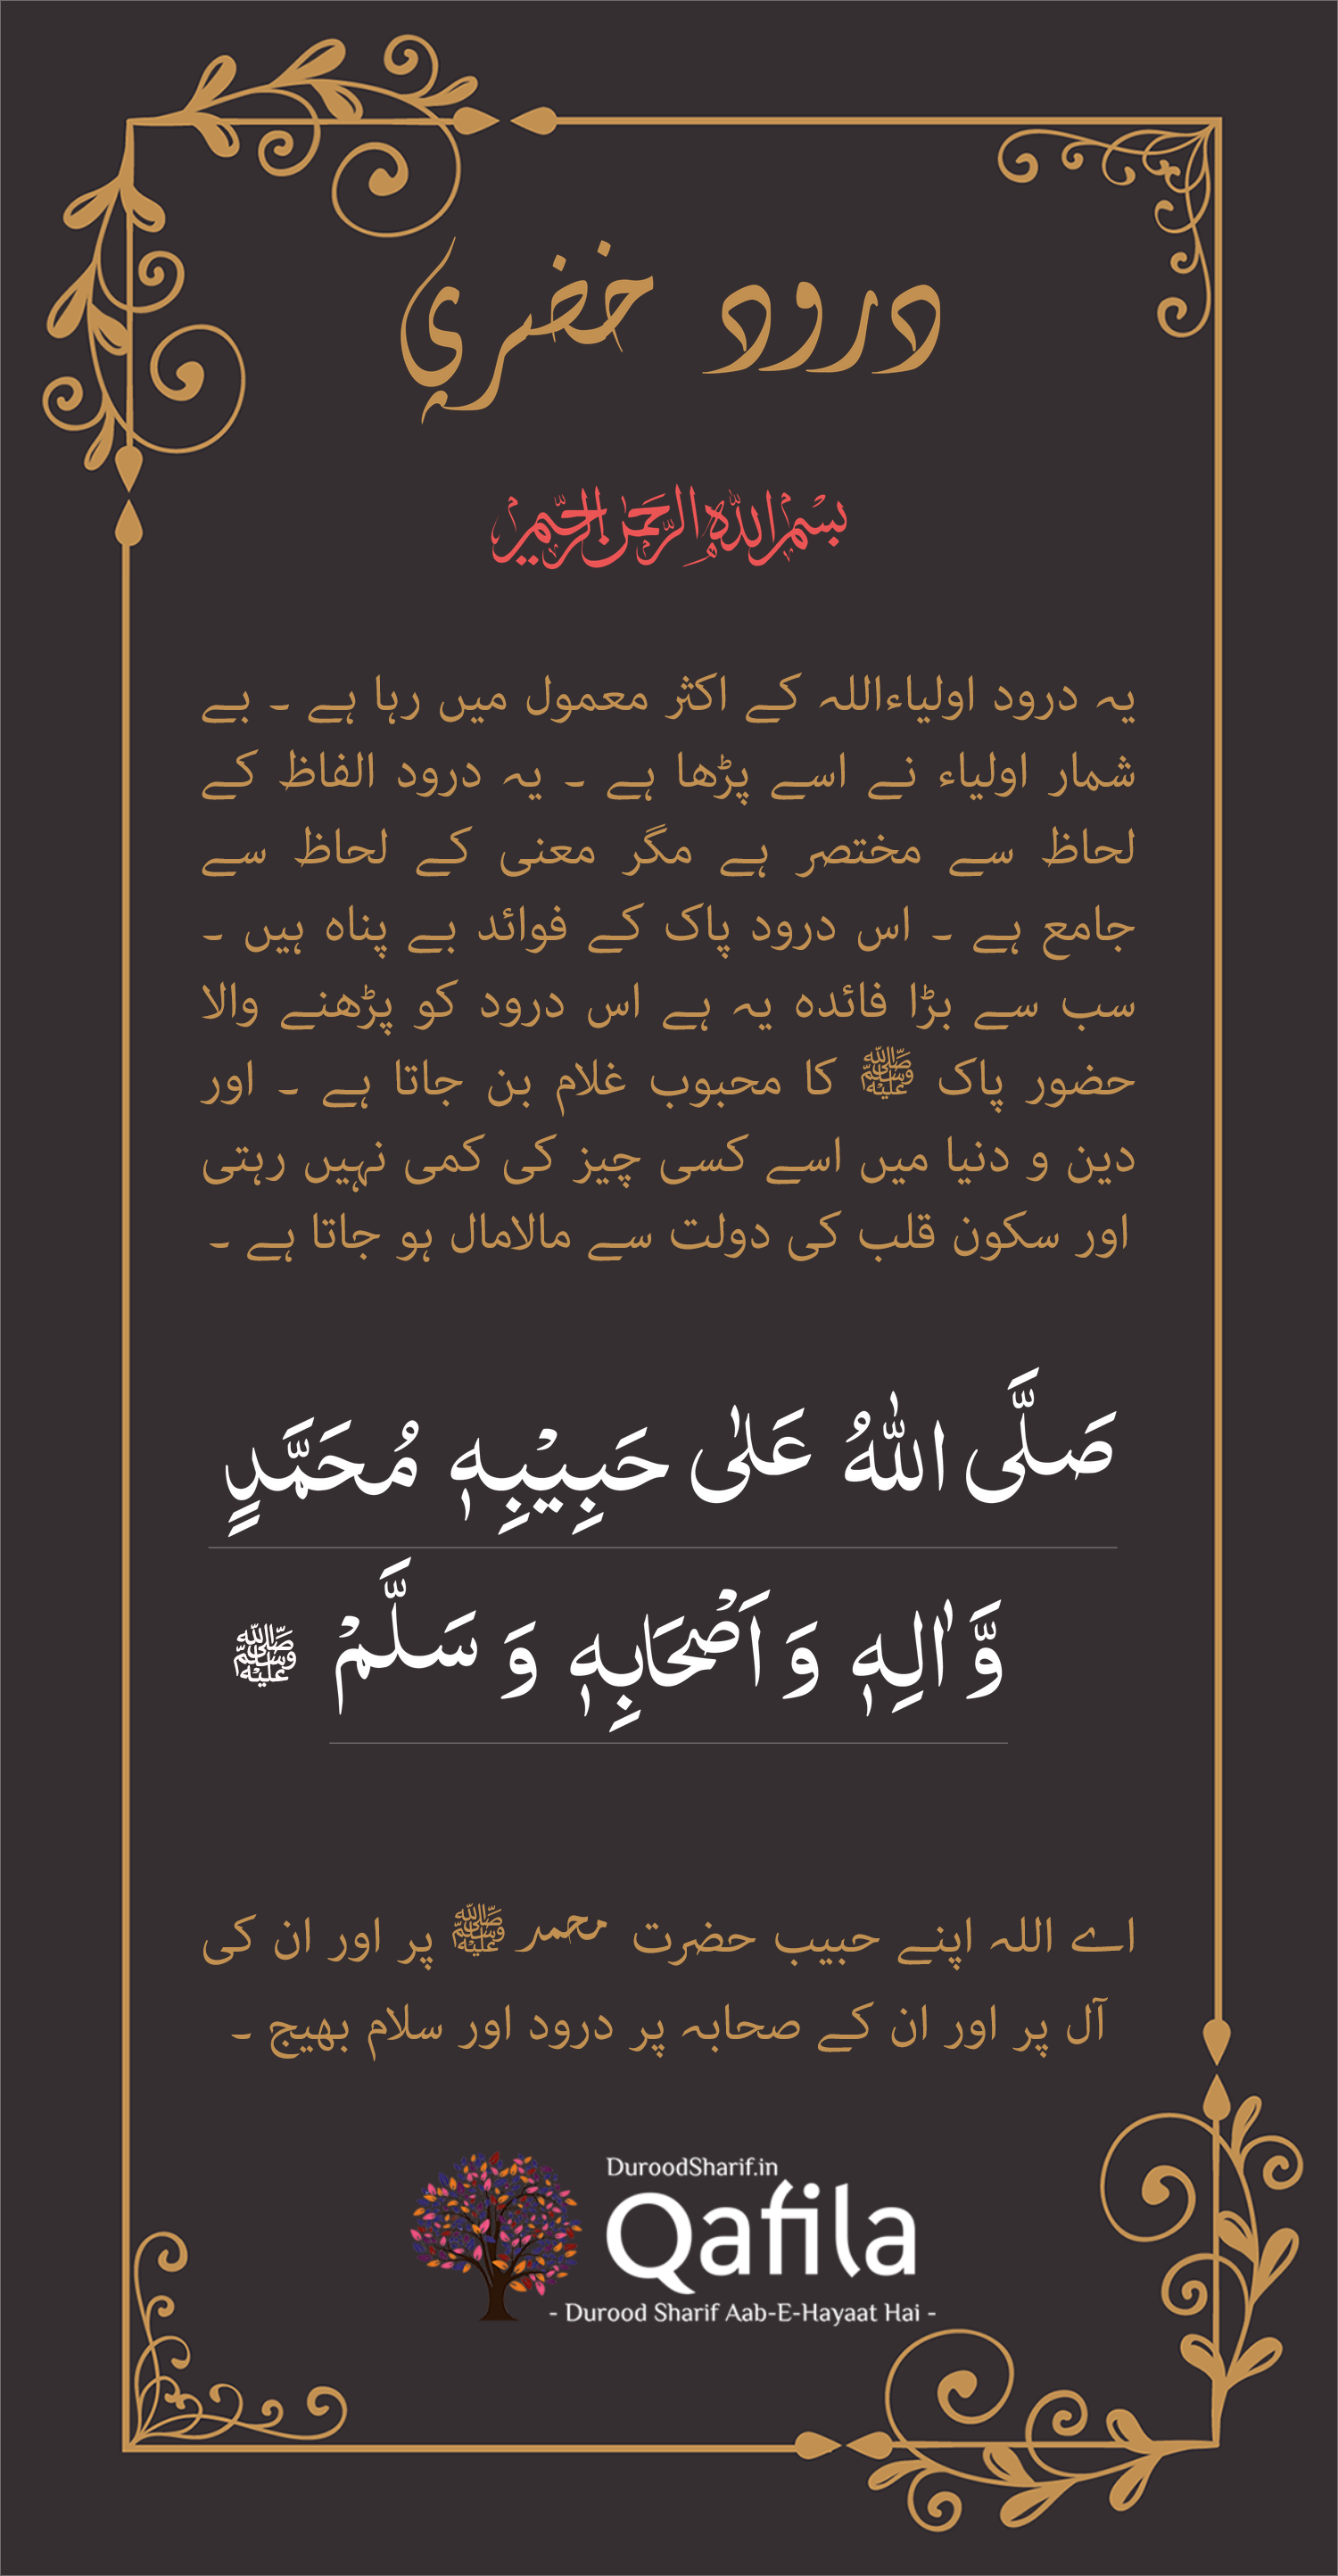 درود خضري
بسم الله الرحمن الرحيم
یہ درود اولیاءاللہ کے اکثر معمول میں رہا ہے ۔ بے
شمار اولیاء نے اسے پڑھا ہے ۔ یہ درود الفاظ کے
لحاظ سے مختصر ہے مگر معنی کے لحاظ سے
جامع ہے ۔ اس درود پاک کے فوائد بے پناہ ہیں ۔
سب سے بڑا فائدہ یہ ہے اس درود کو پڑھنے والا
حضور پاک ﷺ کا محبوب غلام بن جاتا ہے ۔ اور
دین و دنیا میں اسے کسی چیز کی کمی نہیں رہتی
اور سکون قلب کی دولت سے مالامال ہو جاتا ہے ۔
صَلَّى اللّٰهُ عَلٰى حَبِيْبِهٖ مُحَمَّدٍ
وَّاٰلِهٖ وَ اَصْحَابِهٖ وَ سَلَّمْ ﷺ
اے اللہ اپنے حبیب حضرت محمد ﷺ پر اور ان کی
آل پر اور ان کے صحابہ پر درود اور سلام بھیج ۔
DuroodSharif.in
Qafila
- Durood Sharif Aab-E-Hayaat Hai -